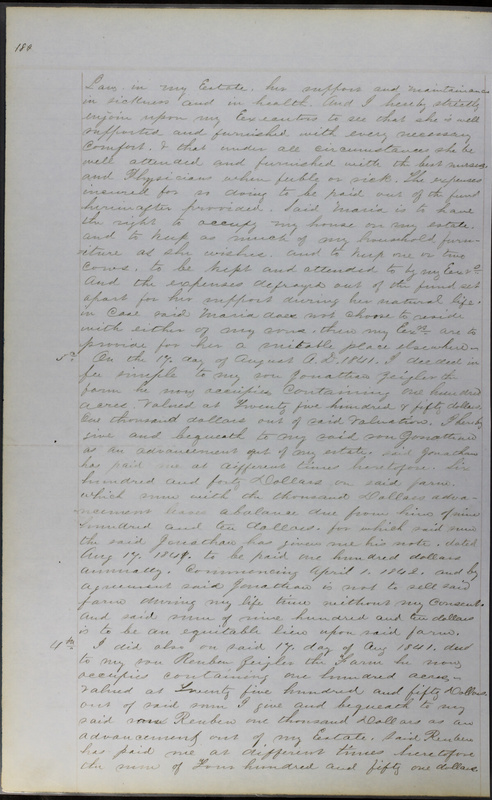 188
Law in my Estate. her support and maintainance
in sickness and in health. And I hereby strictly
enjoin upon my Executors to see that she is well
supported and furnished with every necessary
Comfort. & that under all circumstances she be
well attended and furnished with the best nurses
and Physicians when feeble or sick. The expenses
incurred for so doing to be paid out of the fund
hereinafter provided. Said Maria is to have
the right to occupy my house on my estate.
and to keep as much of my household furni-
ture as she wishes. and to keep one or two
Cows. to be kept and attended to by my Exrs
And the expenses defrayed out of the fund set
apart for her support during her natural life.
in Case said Maria does not choose to reside
with either of my sons. then my Exrs are to
provide for her a suitable place elsewhere—
On the 17. day of August A.D. 1841. I deeded in
fee simple to my son Jonathan Zeigler the
farm he now occupies Containing one hundred
acres Valued at Twenty five hundred & fifty dollars
One thousand dollars out of said valuation. I hereby
give and bequeath to my said son Jonathan
as an advancement out of my estate. said Jonathan
has paid me at different times heretofore. Six
hundred and forty Dollars on said farm.
Which sum with the thousand Dollars advan-
cement leaves a balance due from him of nine
hundred and ten dollars. for which said sum
the said Jonathan has given me his note. dated
Aug 17. 1841. to be paid one hundred dollars
annually. Commencing April 1. 1842. and by
agreement said Jonathan is not to sell said
farm during my life time without my Consent.
and said sum of nine hundred and ten dollars
is to be an equitable lien upon said farm.
4th I did also on said 17. day of Aug 1841. deed
to my son Reuben Zeigler the Farm he now
occupies containing one hundred acres.—
Valued at Twenty five hundred and fifty Dollars
out of said sum I give and bequeath to my
said son Reuben one thousand Dollars as an
advancement out of my Estate. Said Reuben
has paid me at different times heretofore
the sum of Four hundred and fifty one dollars.